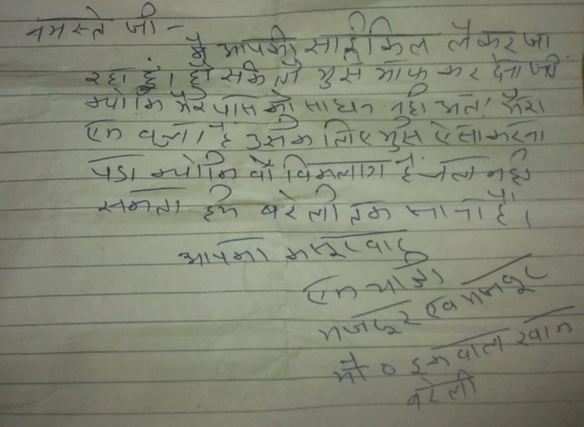 नमस्ते जी -
मै आपकी साईकिल लेकर जा
रहा हूं। हो सके तो मुझे माफ कर देना जी
क्योकि मेरे पास कोई साधन नही था। मेरा
एक बच्चा है उसके लिए मुझे ऐसा करना
पड़ा क्योकि वो विकलांग है चल नही
सकता हमे बरेली तक जाना है।
आपका कसूरवार
एक यात्री
मजदूर एव मजबूर
मौ० इकबाल खान
बरेली